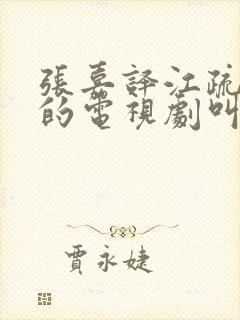 張嘉譯江疏
的電視劇叫
賈永婕